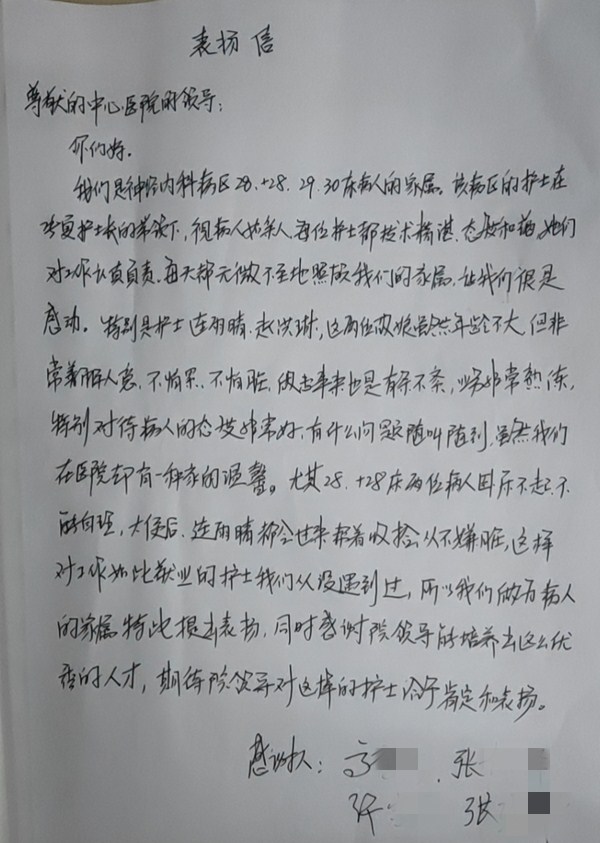 表扬信
尊敬的中心医院的领导：
你们好。
我们是神经内科病区28.+28.29.30床病人的家属。该病区的护士在
护士长的带领下，视病人如亲人，每位护士都技术精湛，态度和蔼，她们
对工作认真负责，每天都无微不至地照顾我们的家属，让我们很是
感动。特别是护士连丽晴、赵洪琳，这两位姑娘虽然年龄不大，但非
常善解人意，不怕累、不怕脏，做起事来也是有条不紊，业务非常熟练，
特别对待病人的态度非常好，有什么问题随叫随到，虽然我们
在医院却有一种家的温馨。尤其28.+28床两位病人因斥不起.不
能自理，大便后，连丽晴都会过来帮着收拾从不嫌脏，这样
对工作如此敬业的护士我们从没遇到过，所以我们做为病人
的家属特此提出表扬，同时感谢院领导能培养出这么优
秀的人才，期待院领导对这样的护士给予肯定和表扬。
感谢人：高 、张
许 张